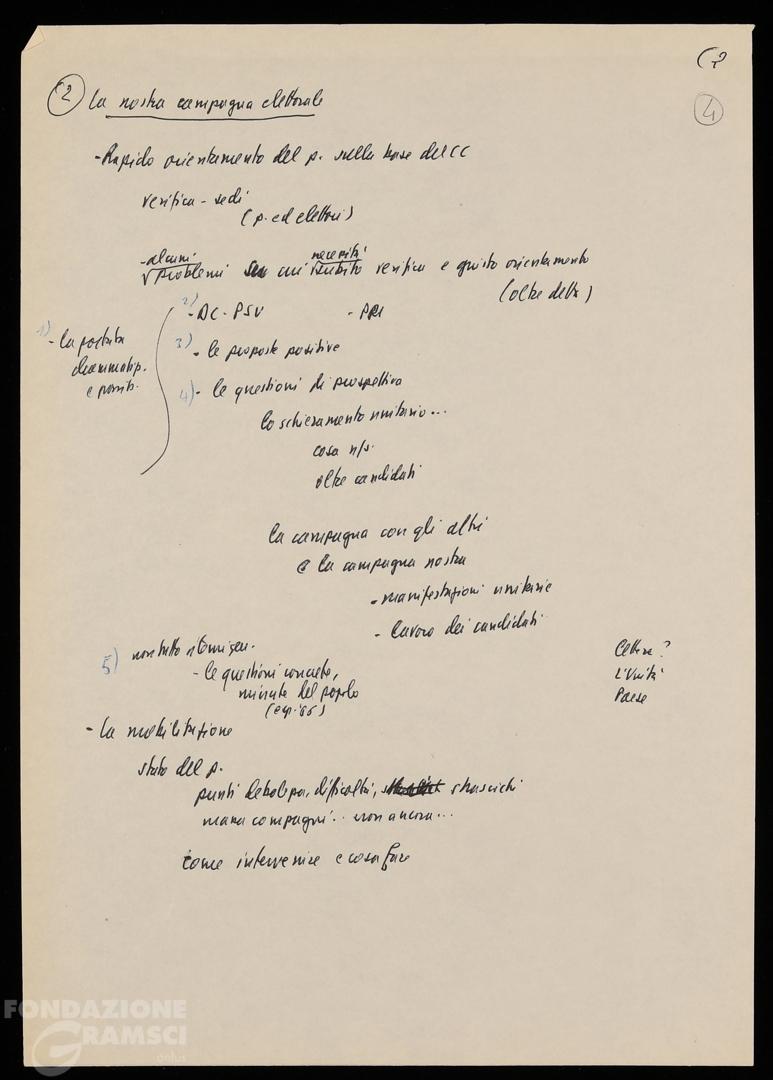 4
2 La nostra campagna elettorale
- Rapido orientamento del p. sulla base del CC
verifica - sedi
(p. ed elettori)
- alcuni necessità
problemi su cui subito verifica e giusto orientamento
(oltre detti)
2) - DC - PSU - PRI
1) - la portata
e possib.
3) - le proposte positive
4) - le questioni di prospettiva
lo schieramento unitario...
cosa n/s.
oltre candidati
la campagna con gli altri
e la campagna nostra
- manifestazioni unitarie
- lavoro dei candidati
5) non tutto
- le questioni concrete,
minute del popolo
Lettere?
L'Unità
Paese
- La mobilitazione
stato del p.
punti debolezza, difficoltà, strascichi
massa compagni.. non ancora...
come intervenire e cosa fare
FONDAZIONE
GRAMSCI
onlus